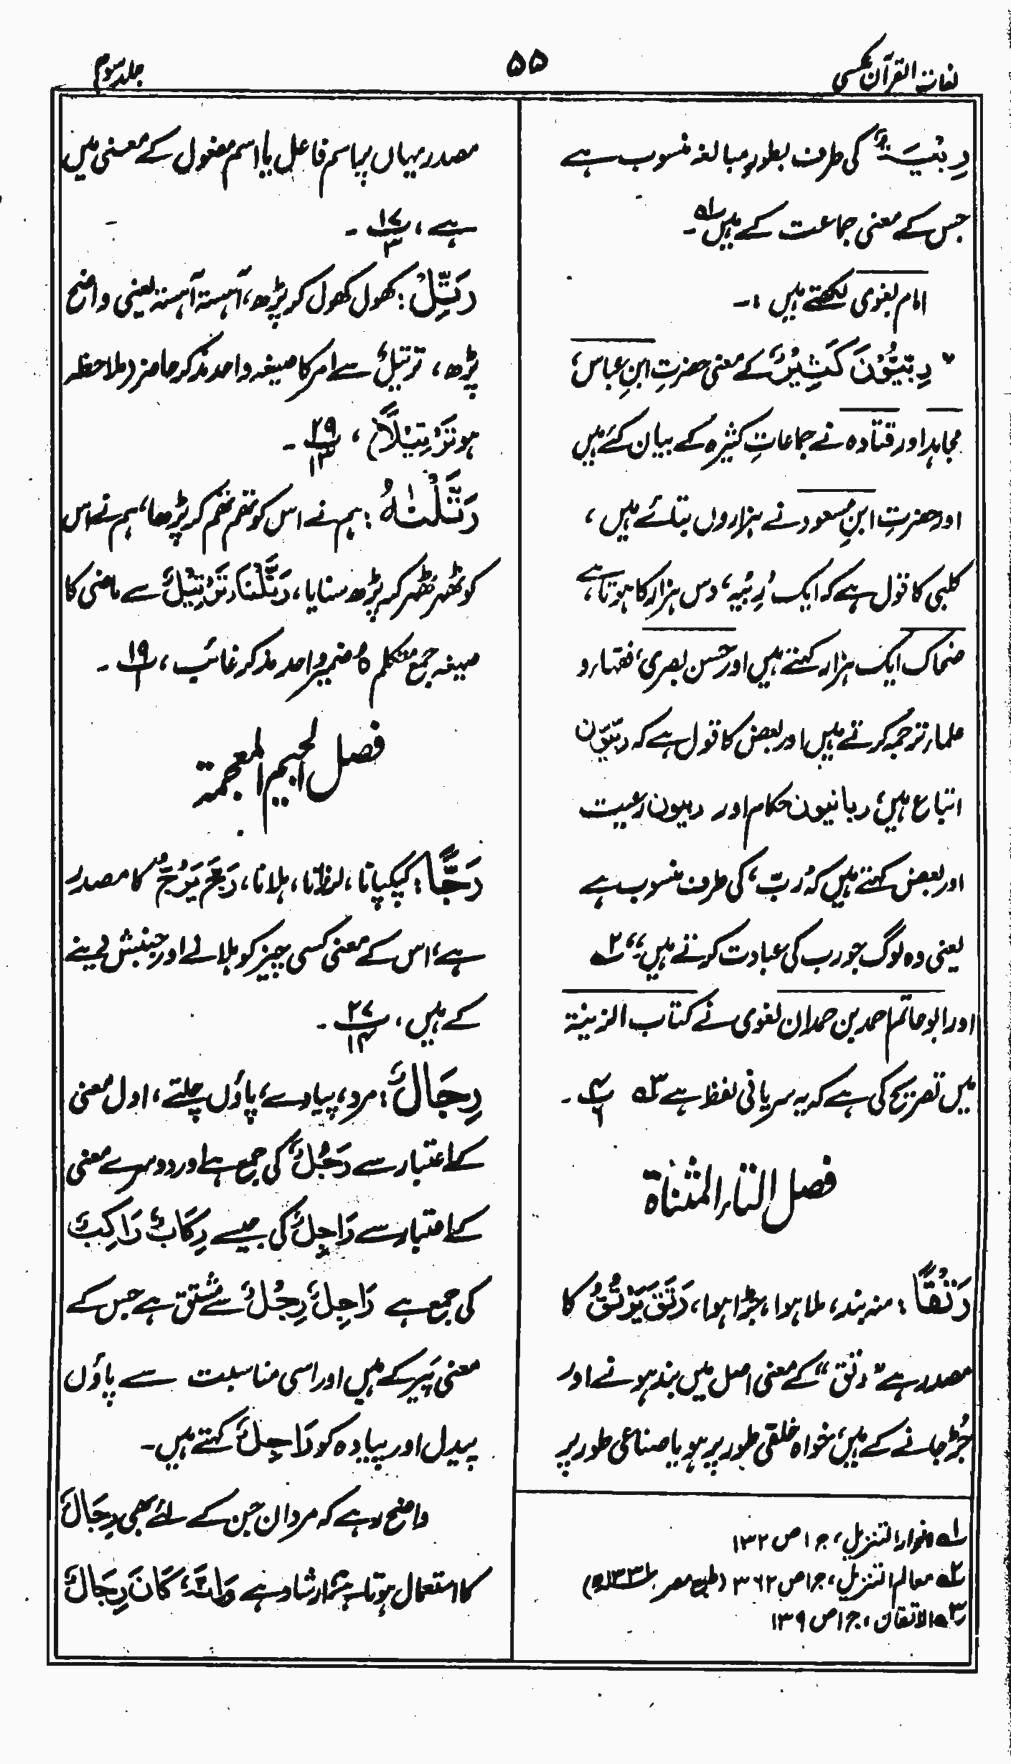 لغات القرآن عکسی
۵۵
جلد سوم
رِبِّیَّۃٌ کی طرف بطور مبالغہ منسوب ہے
جس کے معنی جماعت کے ہیں لہ۔
امام بغوی لکھتے ہیں :۔
" رِبِّیُّوْنَ کَثِیْرٌ کے معنی حضرتِ ابنِ عباس،
مجاہد اور قتادہ نے جماعاتِ کثیرہ کے بیان کئے ہیں
اور حضرتِ ابنِ مسعود نے ہزاروں بتائے ہیں ،
کلبی کا قول ہے کہ ایک رِبِّیہ، دس ہزار کا ہوتا ہے،
ضحاک ایک ہزار کہتے ہیں اور حسن بصری، فقہاء و
علماء ترجمہ کرتے ہیں اور بعض کا قول ہے کہ ربّیّون
اتباع ہیں، ربانیون حکام اور ربیون رعیت
اور بعض کہتے ہیں کہ رَبّ، کی طرف منسوب ہے
یعنی وہ لوگ جو رب کی عبادت کرتے ہیں،، ۲ہ
اور ابو حاتم احمد بن حمدان لغوی نے کتاب الزینۃ
میں تصریح کی ہے کہ یہ سریانی لفظ ہے ۳ہ ۴/۶ ۔
فصل التاء المثناۃ
رَتْقًا : منہ بند، ملا ہوا، جڑا ہوا، رَتَقَ یَرْتُقُ کا
مصدر ہے "رتق" کے معنی اصل میں بند ہونے اور
جُڑ جانے کے ہیں، خواہ خلقی طور پر ہو یا صناعی طور پر
۱ہ انوار التنزیل، ج۱ ص ۱۳۲
۲ہ معالم التنزیل، ج۱ ص ۳۶۲ (طبع مصر ۱۳۳۱ھ)
۳ہ الاتقان، ج۱ ص ۱۳۹
مصدر یہاں پر اسم فاعل یا اسم مفعول کے معنی میں
ہے، ۱۷/۳ ۔
رَتِّلْ : کھول کھول کر پڑھ، آہستہ آہستہ یعنی واضح
پڑھ، ترتیلٌ سے امر کا صیغہ واحد مذکر حاضر (ملاحظہ
ہو تَرْتِیْلًا) ، ۲۹/۱۳ ۔
رَتَّلْنٰہُ : ہم نے اس کو تھم تھم کر پڑھا، ہم نے اس
کو ٹھہر ٹھہر کر پڑھ سنایا، رَتَّلْنَا، تَرْتِیْلٌ سے ماضی کا
صیغہ جمع متکلم ہٗ ضمیر واحد مذکر غائب، ۱۹/۱ ۔
فصل الجیم المعجمۃ
رَجًّا : کپکپانا، لرزانا، ہلانا، رَجَّ یَرُجُّ کا مصدر
ہے، اس کے معنی کسی چیز کو ہلانے اور جنبش دینے
کے ہیں، ۲۷/۱۴ ۔
رِجَالٌ : مرد، پیادے، پاؤں چلتے، اول معنی
کے اعتبار سے رَجُلٌ کی جمع ہے اور دوسرے معنی
کے اعتبار سے رَاجِلٌ کی جیسے رِکَابٌ رَاکِبٌ
کی جمع ہے رَاجِلٌ رِجْلٌ سے مشتق ہے جس کے
معنی پَیر کے ہیں اور اسی مناسبت سے پاؤں
پیدل اور پیادہ کو رَاجِلٌ کہتے ہیں۔
واضح رہے کہ مردان جن کے لئے بھی رِجَالٌ
کا استعمال ہوتا ہے، ارشاد ہے وَاَنَّہٗ کَانَ رِجَالٌ